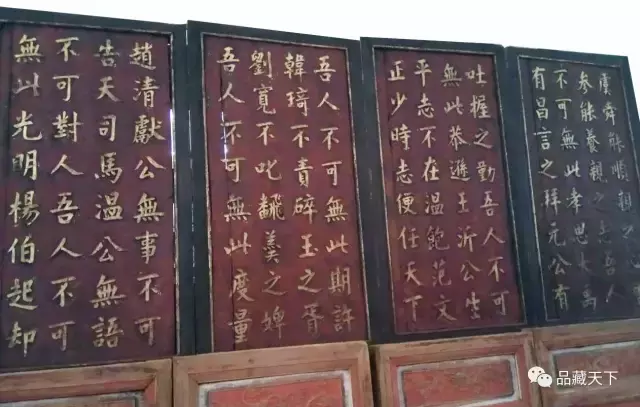 虞舜能順親之
參能養親之志吾人
不可無此孝思大禹
有昌言之拜元公有
吐握之勤吾人不可
無此恭遜王沂公生
平志不在溫飽范文
正少時志便任天下
吾人不可無此期許
韓琦不責碎玉之胥
劉寬不叱飜羹之婢
吾人不可無此度量
趙清獻公無事不可
告天司馬溫公無語
不可對人吾人不可
無此光明楊伯起却
品藏天下